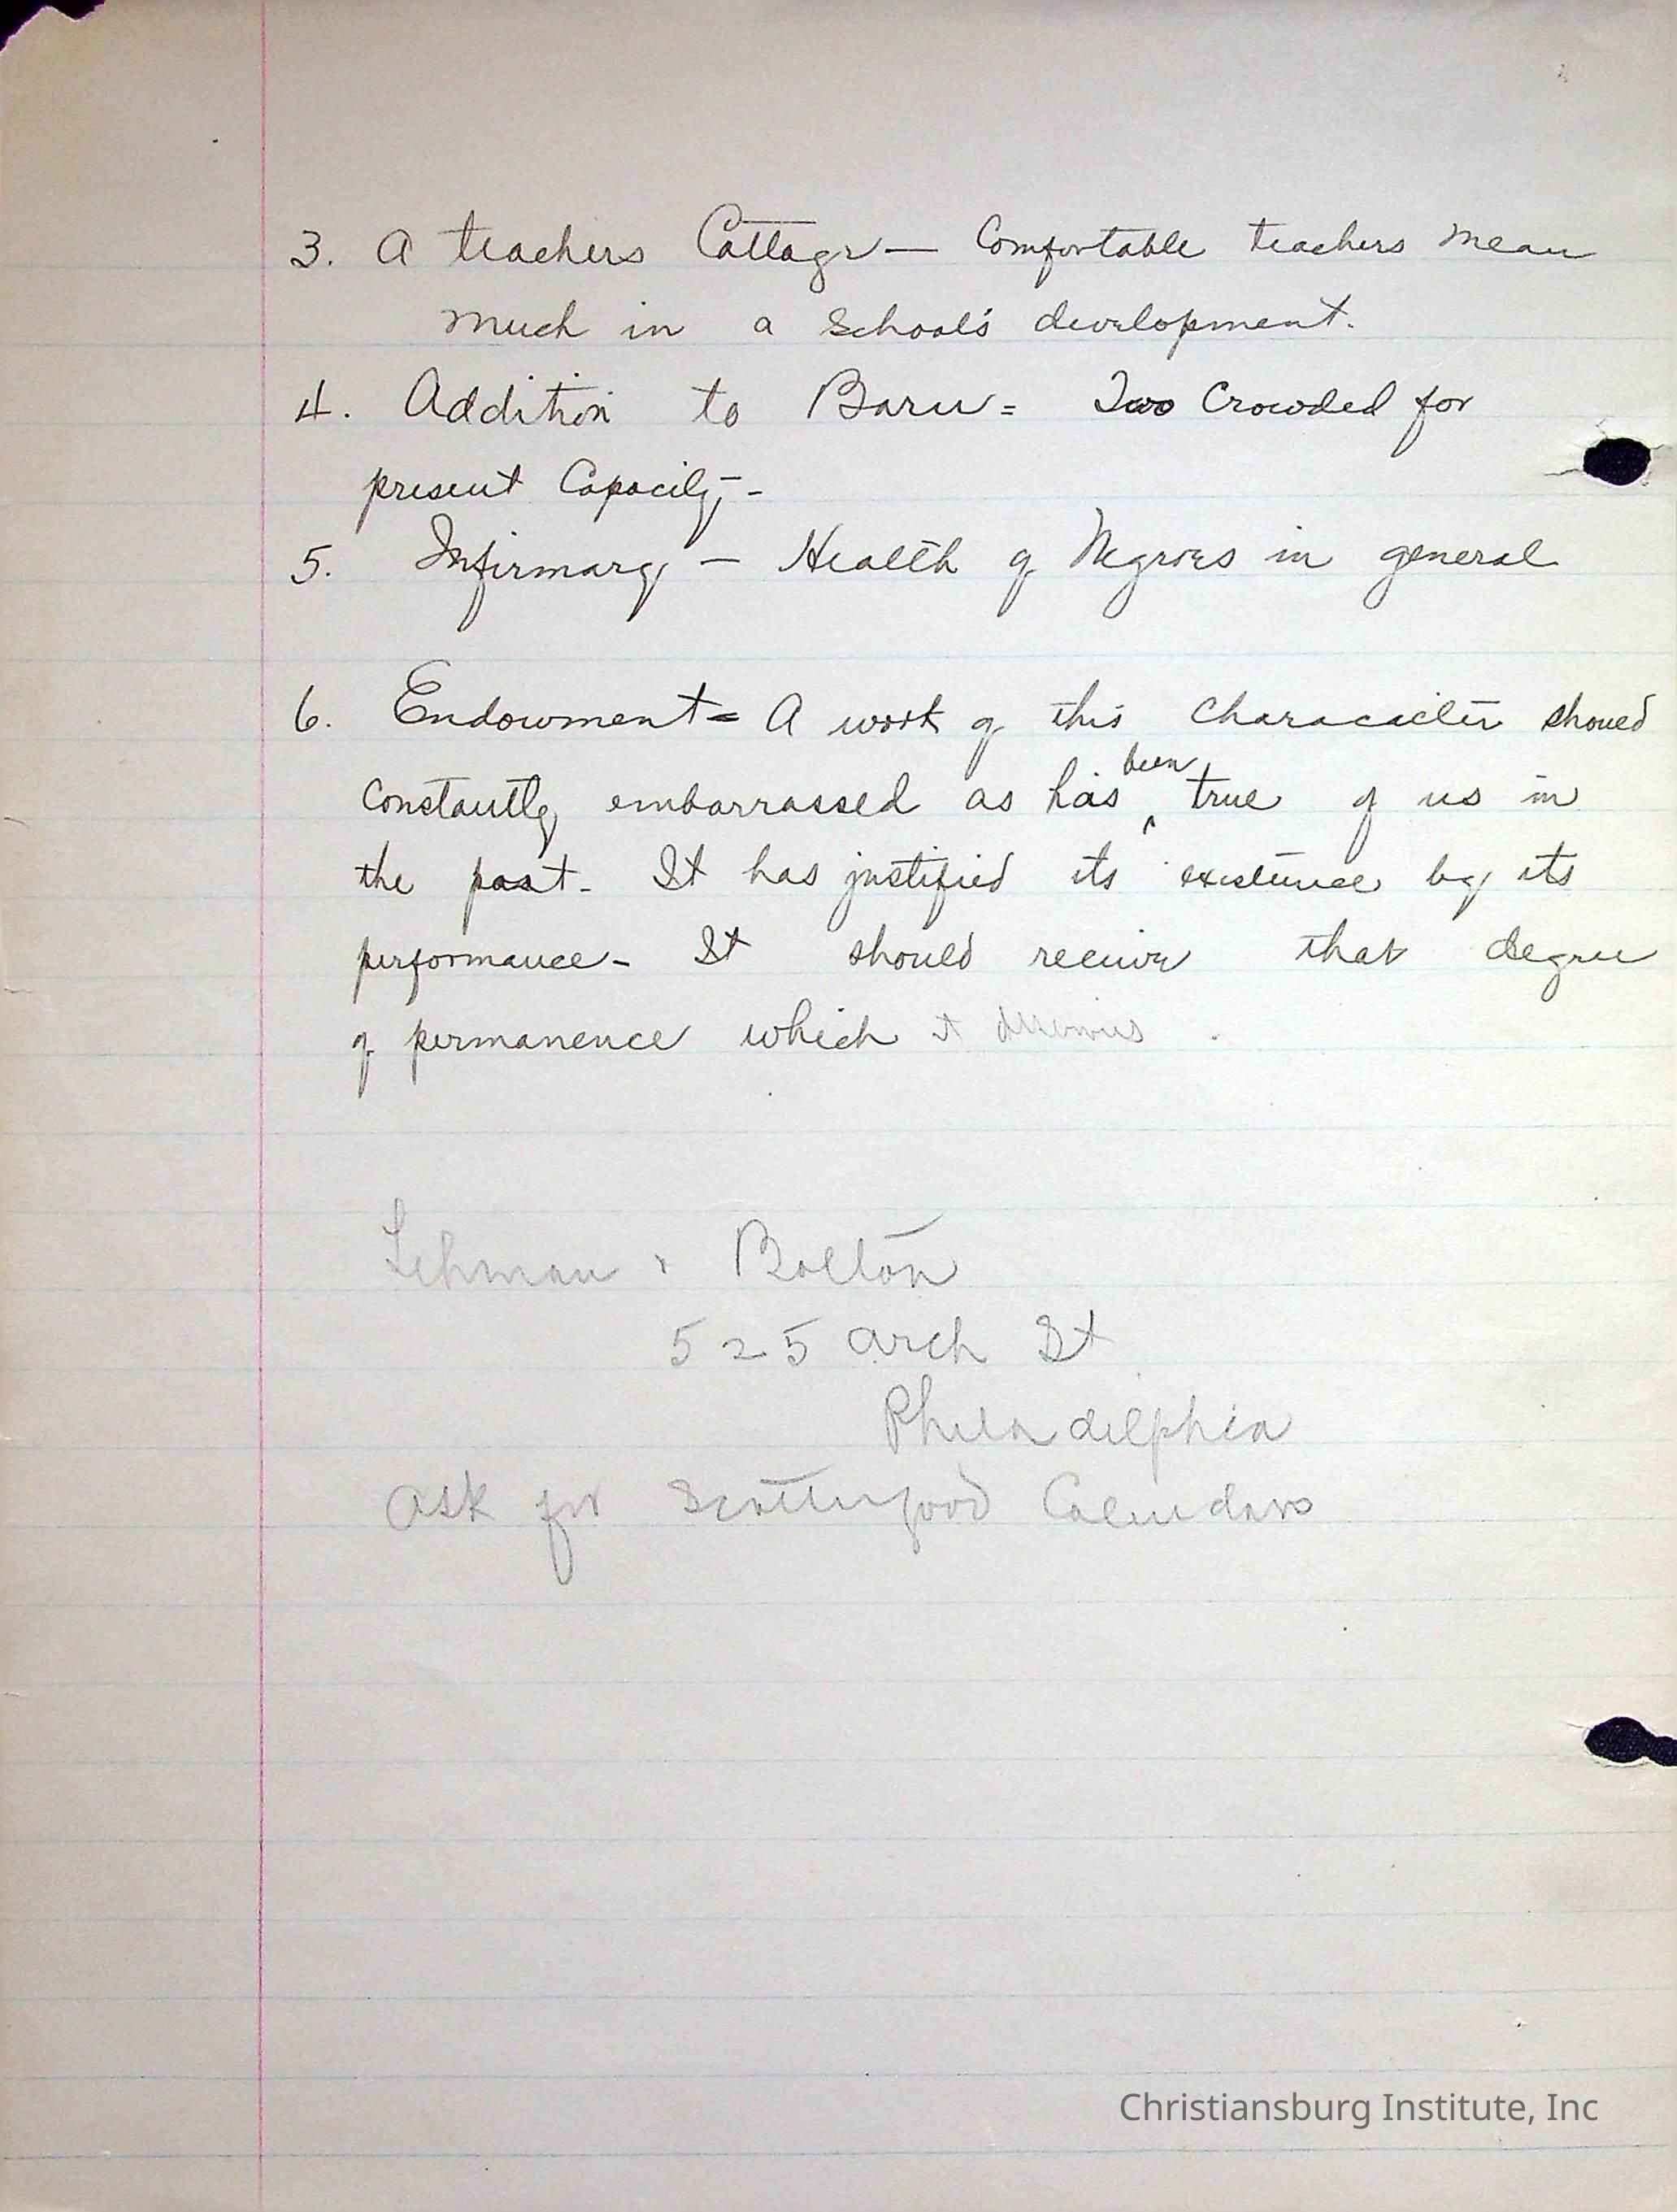 3. A teachers Cottage — Comfortable teachers mean
much in a school's development.
4. Addition to Barn = Two Crowded for
present Capacity -
5. Infirmary — Health of Negroes in general
6. Endowment = A work of this characacter should
constantly embarrassed as has been true of us in
the past - It has justified its existence by its
performance - It should receive that degree
of permanence which it deserves.
Lehman & Bolton
525 Arch St
Philadelphia
Ask for Scattergood Calendars
Christiansburg Institute, Inc